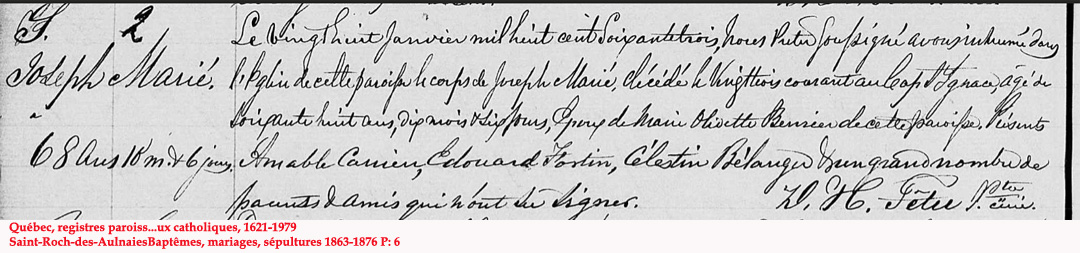 S. 2
Joseph Marié.
68 ans 10 m. & 6 jours
Le vingt huit Janvier mil huit cent soixante trois, nous Prêtre soussigné avons inhumé dans
l'Eglise de cette paroisse le corps de Joseph Marié, décédé le vingt trois courant au Cap St Ignace, âgé de
soixante huit ans, dix mois & six jours, Epoux de Marie Olivette Bernier de cette paroisse. Présents
Amable Carrier, Edouard Fortin, Célestin Bélanger & un grand nombre de
parents & amis qui n'ont su signer.
D. H. Têtu Ptre curé.
Québec, registres paroiss...ux catholiques, 1621-1979
Saint-Roch-des-AulnaiesBaptêmes, mariages, sépultures 1863-1876 P: 6